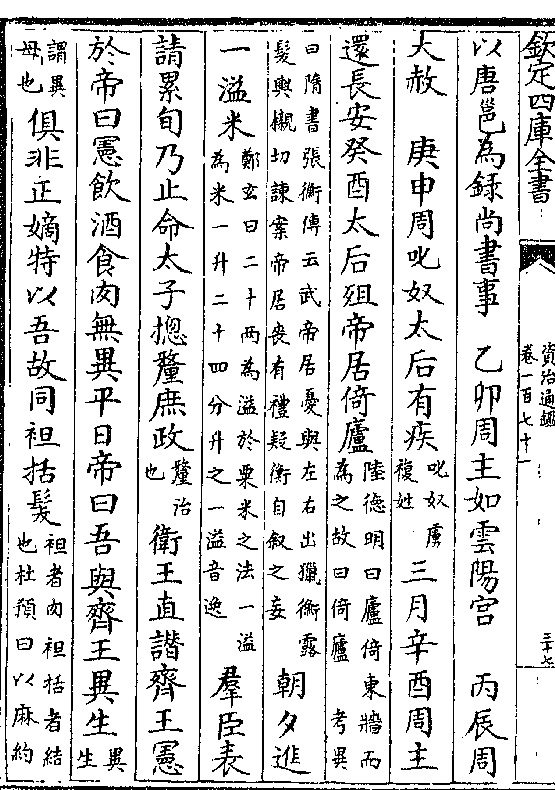 欽定四庫全書
資治通鑑
卷一百七十一
三十七
以唐邕為録尚書事 乙卯周主如雲陽宫 丙辰周
大赦 庚申周叱奴太后有疾叱奴虜複姓 三月辛酉周主
還長安癸酉太后殂帝居倚廬陸德明曰廬倚東牆而為之故曰倚廬 考異
曰隋書張衡傳云武帝居憂與左右出獵衡露髮輿櫬切諫案帝居喪有禮疑衡自叙之妄 朝夕進
一溢米鄭玄曰二十兩為溢於粟米之法一溢為米一升二十四分升之一溢音逸 羣臣表
請累旬乃止命太子揔釐庶政釐治也 衛王直譖齊王憲
於帝曰憲飲酒食肉無異平日帝曰吾與齊王異生異生
謂異母也俱非正嫡特以吾故同袒括髮袒者肉袒括者結也杜預曰以麻約